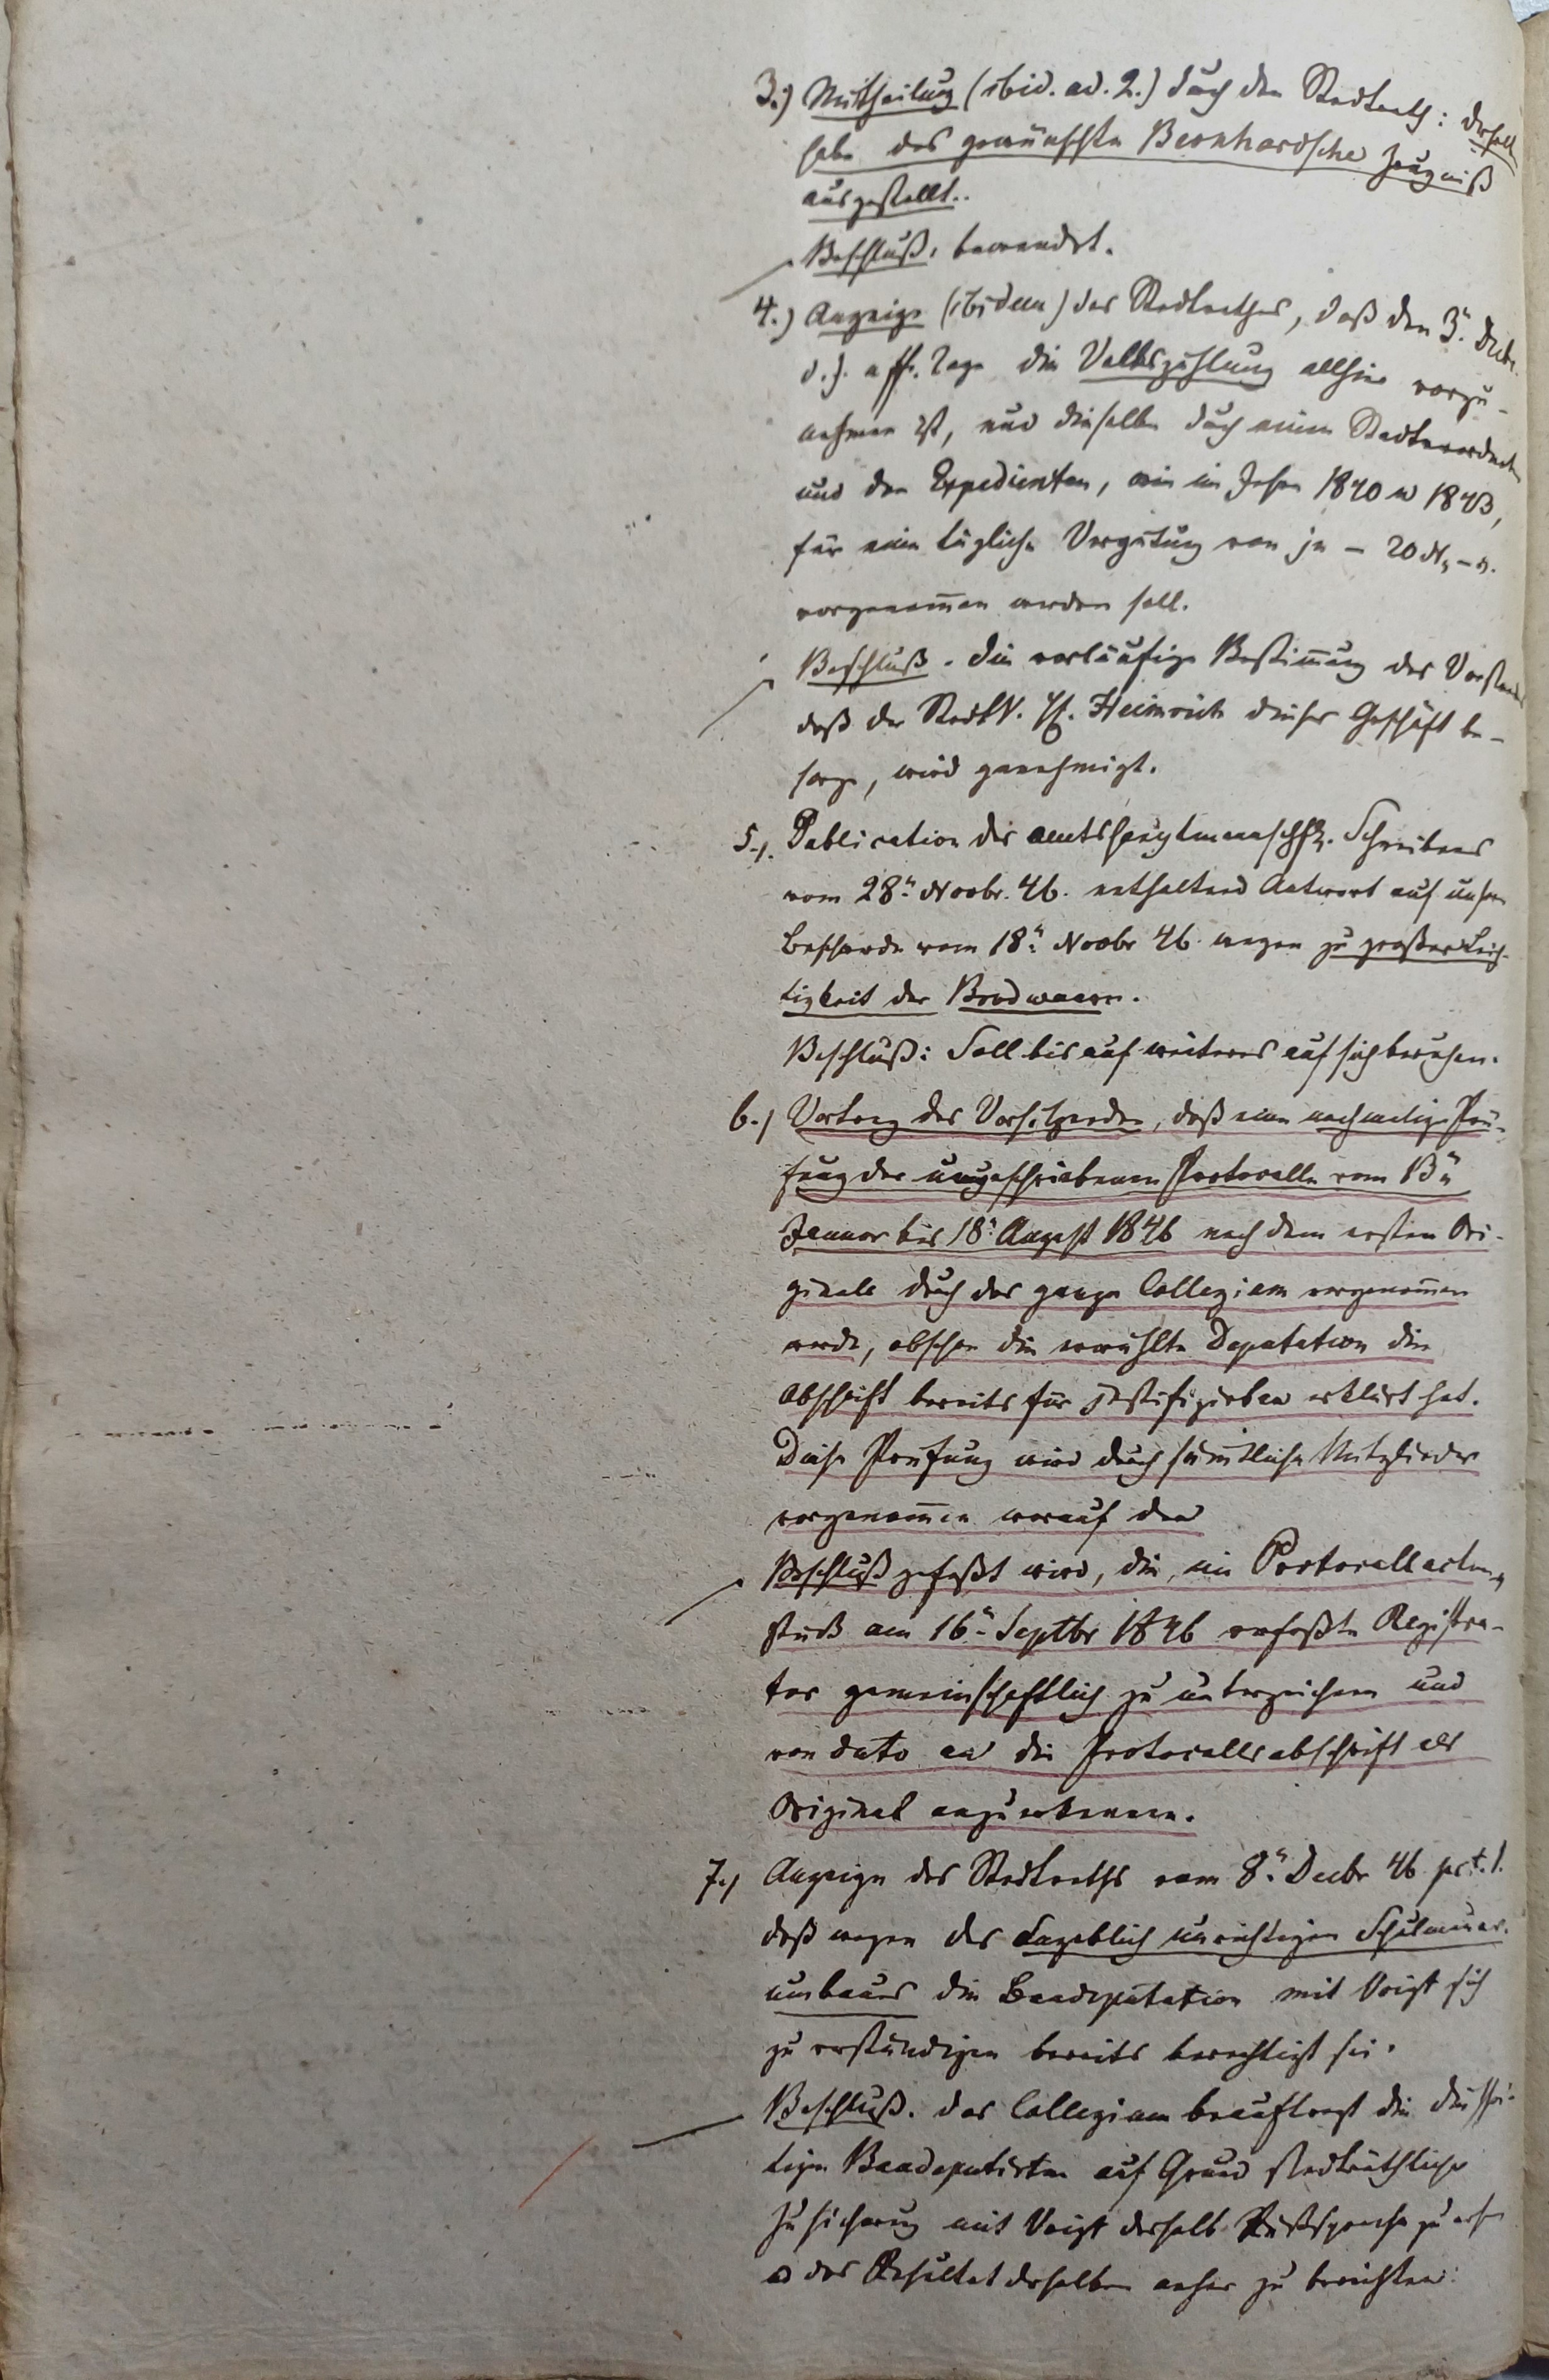 3.) Mittheilung (ibid. ad. 2.) durch den Stadtrath: derselb
habe das gewünschte Bernhardsche Zeugniß
ausgestellt.
Beschluß, bewendet.
4.) Anzeige (ibidem) des Stadtrathes, daß den 3. Decbr.
d. J. u ff. Tage die Volkszählung allhier vorzu-
nehmen ist, und dieselbe durch einen Stadtverordneten
und den Expedienten, wie im Jahre 1840 u 1843,
für eine tägliche Vergütung von je – 20 N, –.
vorgenom̄en werden soll.
Beschluß. die vorläufige Bestim̄ung des Vorstandes
daß der StadtV. H. Heinrich dieses Geschäft be-
sorge, wird genehmigt.
5.). Publication des amtshauptmannschftl. Schreibens
vom 28. Novbr. 46. enthaltend Antwort auf unsere
Beschwerde vom 18. Novbr 46. wegen zu großer Leich-
tigkeit der Brodwaaren.
Beschluß: Soll bis auf weiteres auf sich beruhen.
6.) Vortrag des Vorsitzenden, daß eine nochmalige Prü-
fung der umgeschriebenen Protocolle vom 13.
Januar bis 18. August 1846 nach dem ersten Ori-
ginale durch das ganze Collegium vorgenom̄en
werde, obschon die erwählte Deputation die
Abschrift bereits für justifizirben erklärt hat.
Diese Prüfung wird durch säm̄tliche Mitglieder
vorgenom̄en worauf der
Beschluß gefaßt wird, die, im Protocollacten-
stück am 16. Septbr 1846 verfaßte Registra-
tur gemeinschaftlich zu unterzeichnen und
von dato an die Protocollsabschrift als
Original anzuerkennen.
7.) Anzeige des Stadtraths vom 8. Decbr 46
daß wegen des angeblich unrichtigen Schulmauer-
umbaues die Baudeputation mit Voigt sich
zu verständigen bereits berechtigt sei.
Beschluß. das Collegium beauftragt die diessei-
tigen Baudeputirten auf Grund stadträthlicher
Zusicherung mit Voigt deshalb Rücksprache zu
u das Resultat derselben anher zu berichten.